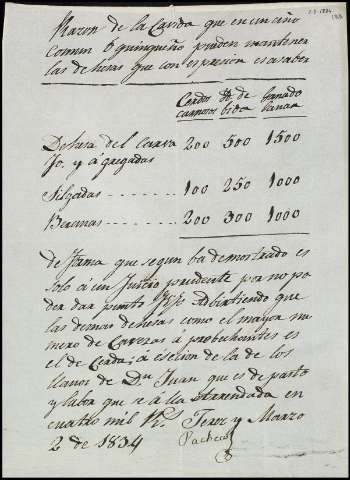 Razon de la Cavida que en un año
comun ó quinqueño pueden mantener
las dehesas que con espresion es asaber
Cerdos Yd. de Ganado
carnosos bida lanar
Dehesa del Carva
jo. y agregadas 200 500 1500
Silgadas 100 250 1000
Bercinas 200 300 1000
de forma que segun ba demostrado es
solo á un Juicio prudente por no po
der dar punto fijo Adbirtiendo que
las demas dehesas como el mayor nu
mero de Caveras á probechantes es
el de Cerda; á escecion de la de los
llanos de Dn Juan que es de pasto
y labor que se á lla Arrendada en
cuatro mil Rs. Feroz y Marzo
2 de 1834
Pacheco